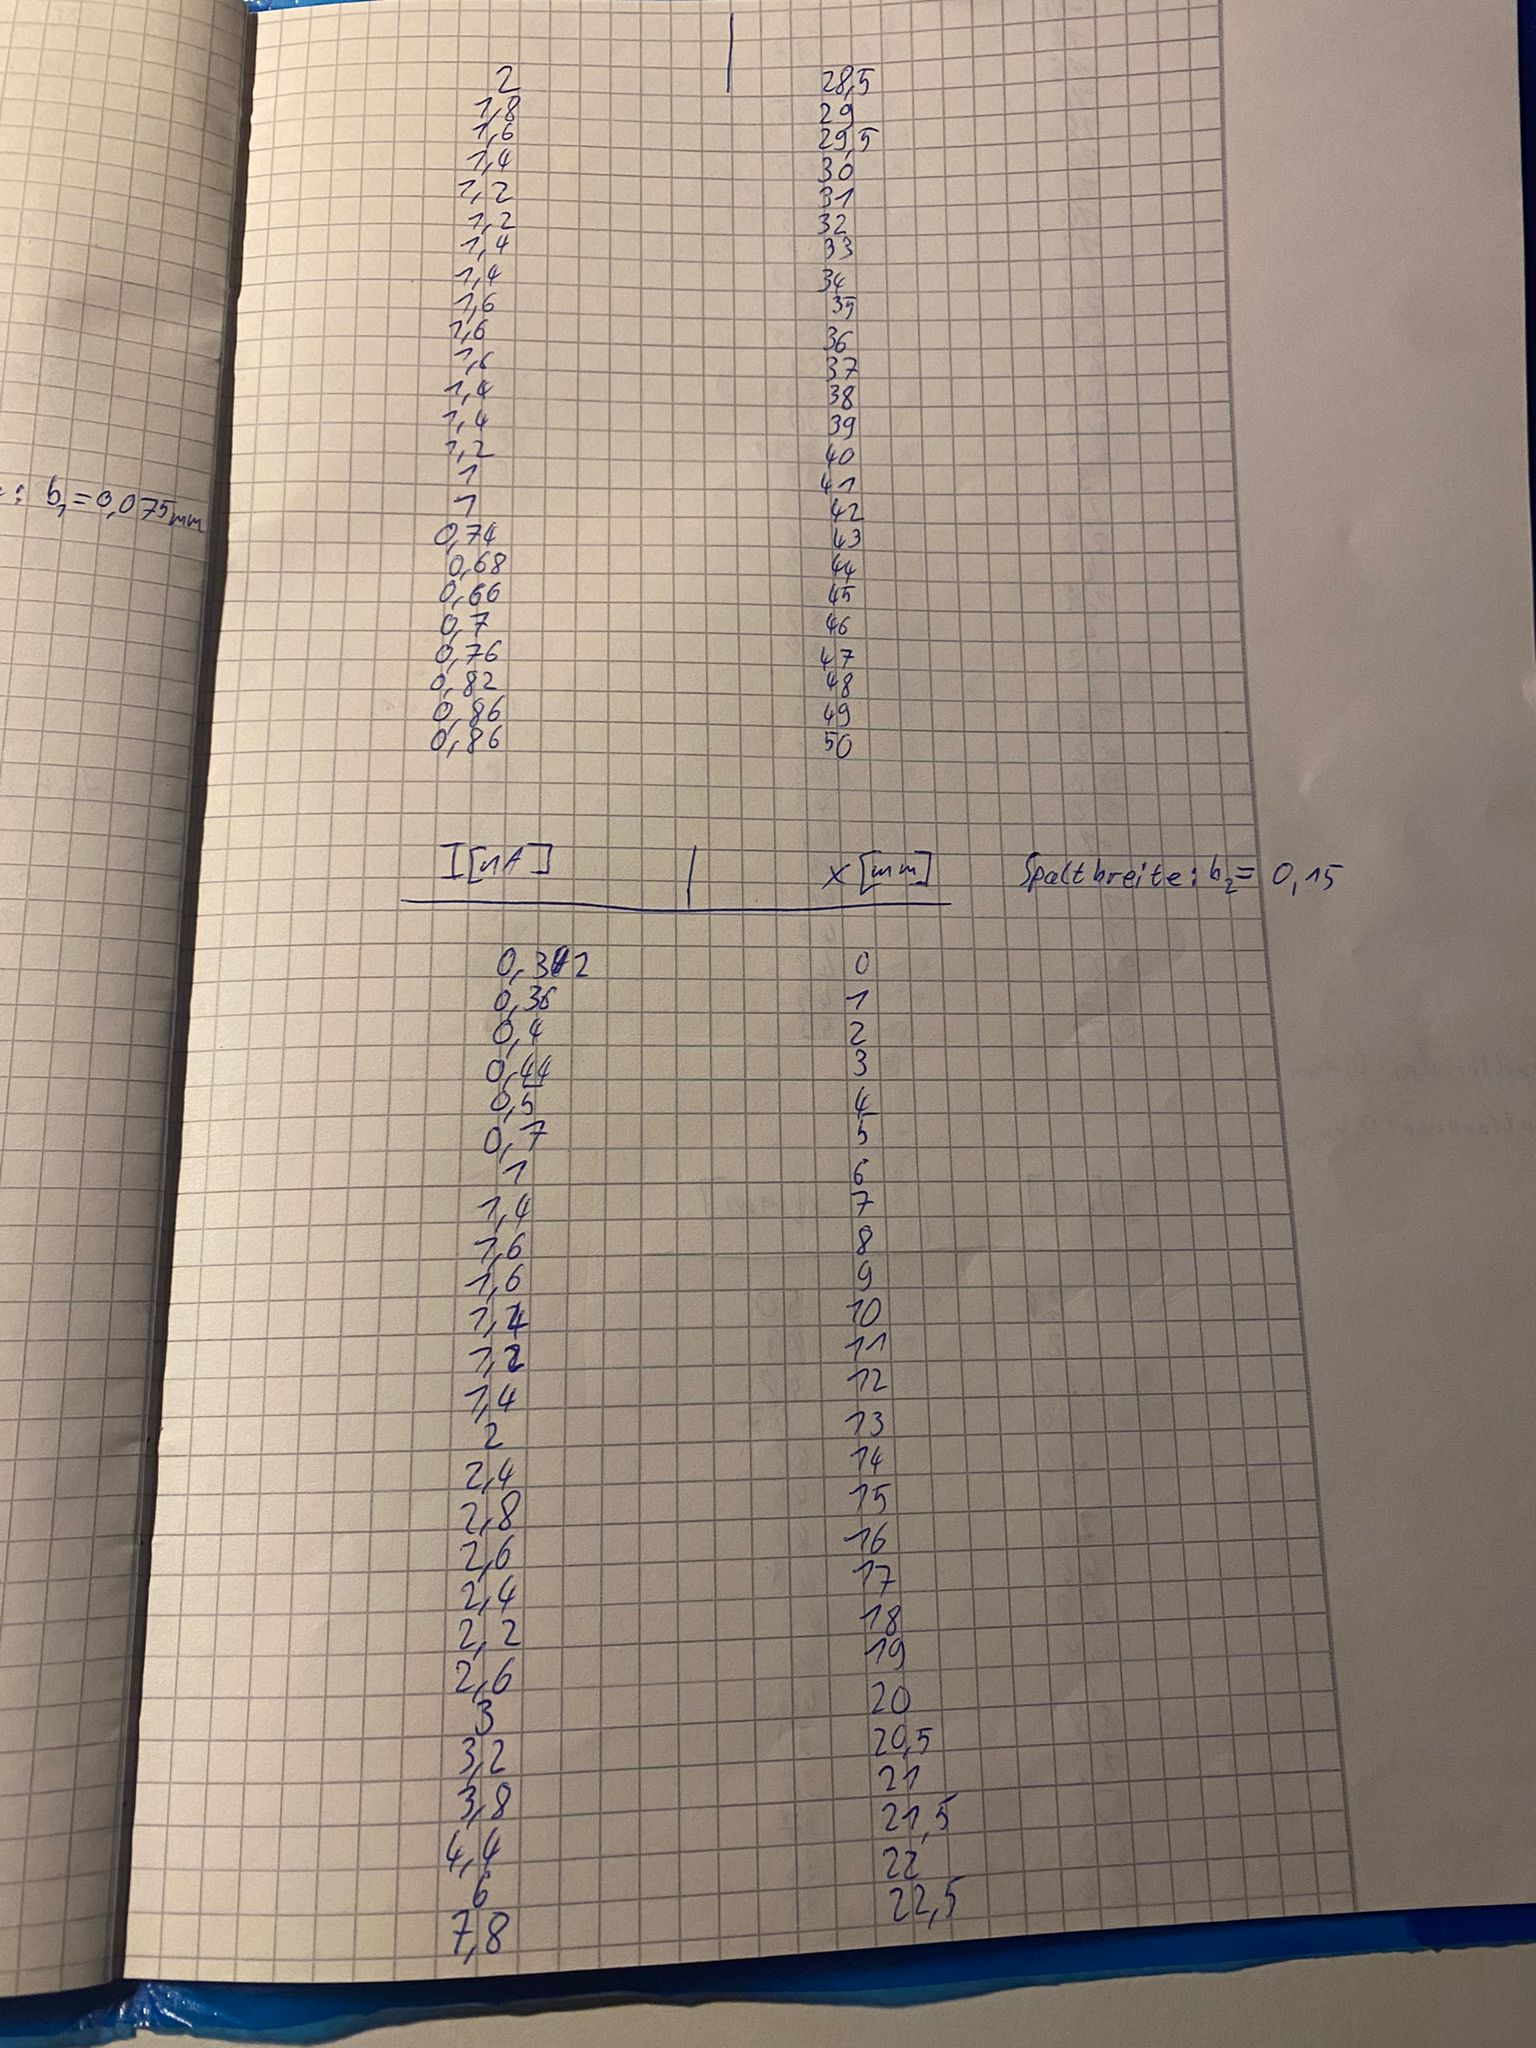 2 28,5
1,8 29
1,6 29,5
1,4 30
1,2 31
1,2 32
1,4 33
1,4 34
1,6 35
1,6 36
1,6 37
1,4 38
1,4 39
1,2 40
1 41
: b₁ = 0,075mm
1 42
0,74 43
0,68 44
0,66 45
0,7 46
0,76 47
0,82 48
0,86 49
0,86 50
I[nA] | x [mm] Spaltbreite: b₂ = 0,15
0
0,36 1
0,4 2
0,44 3
0,5 4
0,7 5
1 6
1,4 7
1,6 8
1,6 9
1,4 10
1,2 11
1,4 12
2 13
2,4 14
2,8 15
2,6 16
2,4 17
2,2 18
2,6 19
3 20
3,2 20,5
3,8 21
4,4 21,5
6 22
7,8 22,5